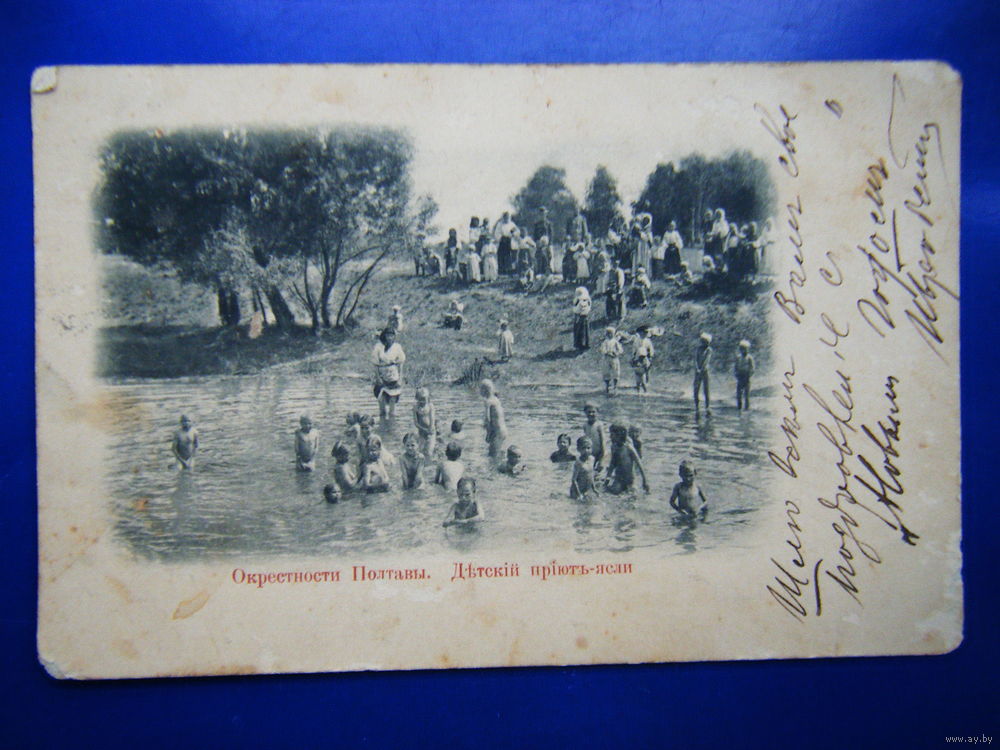 Окрестности Полтавы. Дѣтскій прiютъ-ясли
Шлю Вамъ свое
поздравленіе с
"Новымъ годомъ"
www.ay.by